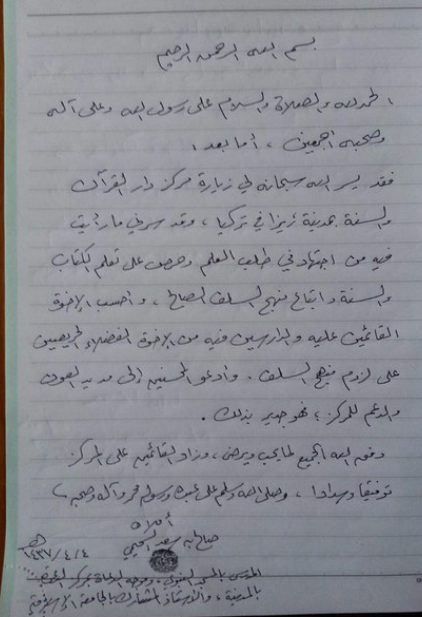 بسم الله الرحمن الرحيم
الحمد لله والصلاة والسلام على رسول الله وعلى آله
وصحبه أجمعين، أما بعد:
فقد يسر الله سبحانه لي زيارة مركز دار القرآن
والسنة بمدينة ريزا في تركيا، وقد سرني ما رأيت
فيه من اجتهاد في طلب العلم وحرص على تعلم الكتاب
والسنة واتباع منهج السلف الصالح، وأحسب الإخوة
القائمين عليه والدارسين فيه من الإخوة الفضلاء الحريصين
على لزوم منهج السلف. وأدعو المحسنين إلى مد يد العون
والدعم للمركز؛ فهو جدير بذلك.
وفق الله الجميع لما يحب ويرضى، وزاد القائمين على المركز
توفيقا وسدادا، وصلى الله وسلم على عبده ورسوله محمد وآله وصحبه
أملاه
صالح بن سعد السحيمي
١٤٣٧/٤/٤هـ
المدرس بالمسجد النبوي، وموجه الدعاة بمركز الدعوة
بالمدينة، والأستاذ المشارك بالجامعة الإسلامية